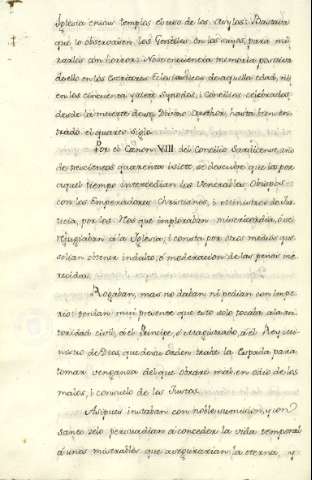 Iglesia en sus templos el uso de los Asylos: Bastava
que lo observasen los Gentiles en los suyos, para mi-
rarlos con horror. No se encuentra memoria particu-
de ello en los Escritores Eclesiasticos de aquella edad, ni
en los cincuenta y siete Synodos, i Concilios celebrados
desde la muerte de su Divino Author, hasta bien en-
trado el quarto Siglo.
Por el Canon VIII del Concilio Sardicense, año
de trescientos quarenta i siete, se descubre que ya por
aquel tiempo intercedian los Venerables Obispos
con los Emperadores Christianos, i ministros de Jus-
ticia, por los Reos que imploraban misericordia, i se
refugiaban a la Iglesia; i consta por otros medios que
solian obtener indulto, ó moderacion de las penas me-
recidas.
Rogaban, mas no daban ni pedian con impe-
rio: tenian mui presente que esto solo tocaba a la au-
toridad civil, á el Principe, ó Magistrado, á el Rey, mi-
nistro de Dios, que de su orden trahe la Espada para
tomar venganza del que obrare mal, en odio de los
malos, i consuelo de los Justos.
Asi pues instaban con noble sumision, y con
santo zelo persuadian a conceder la vida temporal
á unos miserables que asegurarian la eterna, y